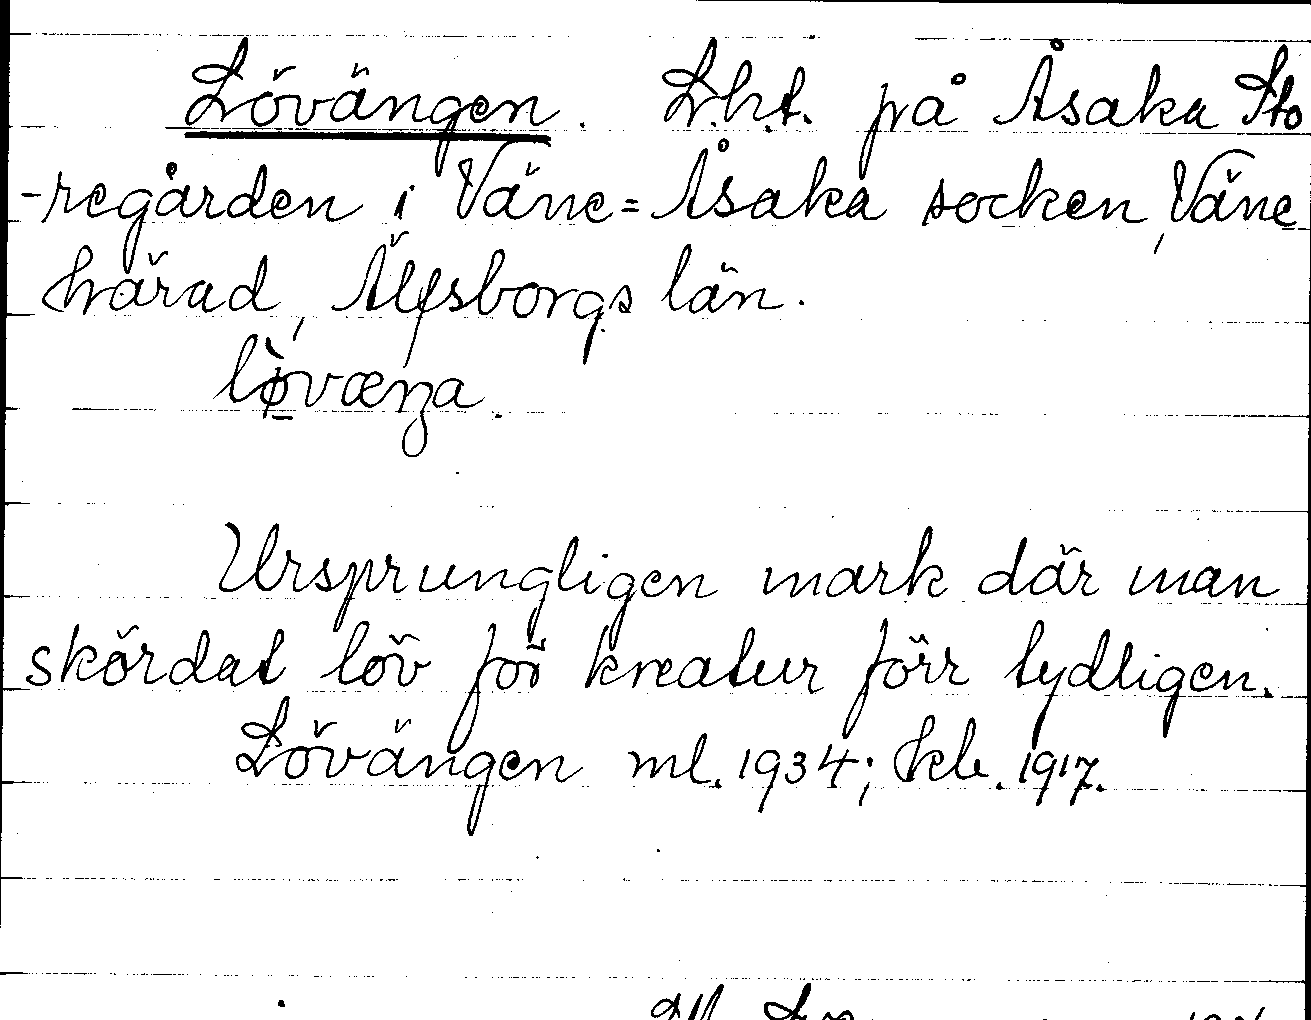 Lövängen. L.h.t. på Åsaka Sto
-regården i Väne=Åsaka socken, Väne
härad, Älfsborgs län.
lø̀væŋa.
Ursprungligen mark där man
skördat löv för kreatur förr tydligen.
Lövängen ml. 1934; Ekb. 1917.